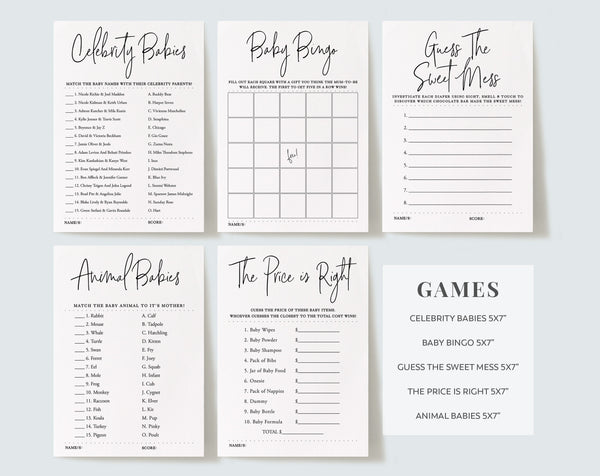 Celebrity Babies
MATCH THE BABY NAMES WITH THEIR CELEBRITY PARENTS!
1. Nicole Richie & Joel Madden
A. Buddy Bear
2. Nicole Kidman & Keith Urban
B. Harper Seven
3. Ashton Kutcher & Mila Kunis
4. Kylie Jenner & Travis Scott
D. Seraphina
5. Beyonce & Jay Z
E. Chicago
6. David & Victoria Beckham
F. Gio Grace
7. Jamie Oliver & Jools
G. Zuma Nesta
8. Adam Levine And Behati Prinsloo
H. Milo Theodore Stephens
9. Kim Kardashian & Kanye West
I. Suri
10. Evan Spiegel And Miranda Kerr
11. Ben Affleck & Jennifer Garner
K. Blue Ivy
12. Chrissy Teigen And John Legend
L. Stormi Webster
13. Brad Pitt & Angelina Jolie
M. Sparrow James Midnight
14. Blake Lively & Ryan Reynolds
N. Sunday Rose
15. Gwen Stefani & Gavin Rossdale
O. Hart
NAME/S:
SCORE:
Baby Bingo
FILL OUT EACH SQUARE WITH A GIFT YOU THINK THE MUM-TO-BE
WILL RECEIVE. THE FIRST TO GET FIVE IN A ROW WINS!
NAME/S:
Guess The
Sweet Mess
INVESTIGATE EACH DIAPER USING SIGHT, SMELL & TOUCH TO
DISCOVER WHICH CHOCOLATE BAR MADE THE SWEET MESS!
1.
2.
3.
4.
5.
6.
7.
8.
NAME/S:
SCORE:
Animal Babies
MATCH THE BABY ANIMAL TO IT'S MOTHER!
1. Rabbit
A. Calf
2. Mouse
B. Tadpole
3. Whale
C. Hatchling
4. Turtle
D. Kitten
5. Swan
E. Fry
6. Ferret
F. Joey
7. Eel
G. Squab
8. Mole
H. Infant
9. Frog
I. Cub
10. Monkey
J. Cygnet
11. Raccoon
K. Elver
12. Fish
L. Kit
13. Koala
M. Pup
14. Turkey
N. Pinky
15. Pigeon
O. Poult
NAME/S:
SCORE:
The Price is Right
GUESS THE PRICE OF THESE BABY ITEMS.
WHOEVER GUESSES THE CLOSEST TO THE TOTAL COST WINS!
1. Baby Wipes $
2. Baby Powder $
3. Baby Shampoo $
4. Pack of Bibs $
5. Jar of Baby Food $
6. Onesie $
7. Pack of Nappies $
8. Dummy $
9. Baby Bottle $
10. Baby Formula $
TOTAL $
NAME/S:
GAMES
CELEBRITY BABIES 5X7"
BABY BINGO 5X7"
GUESS THE SWEET MESS 5X7"
THE PRICE IS RIGHT 5X7"
ANIMAL BABIES 5X7"